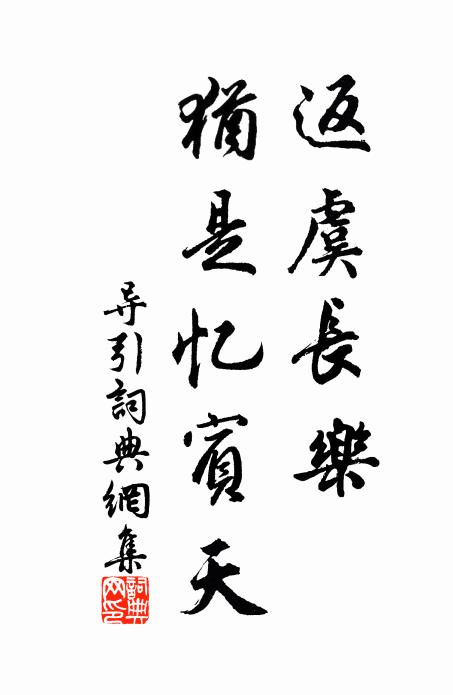 返虞長樂
猶是忆賓天
导引詞典網集
詞典网印